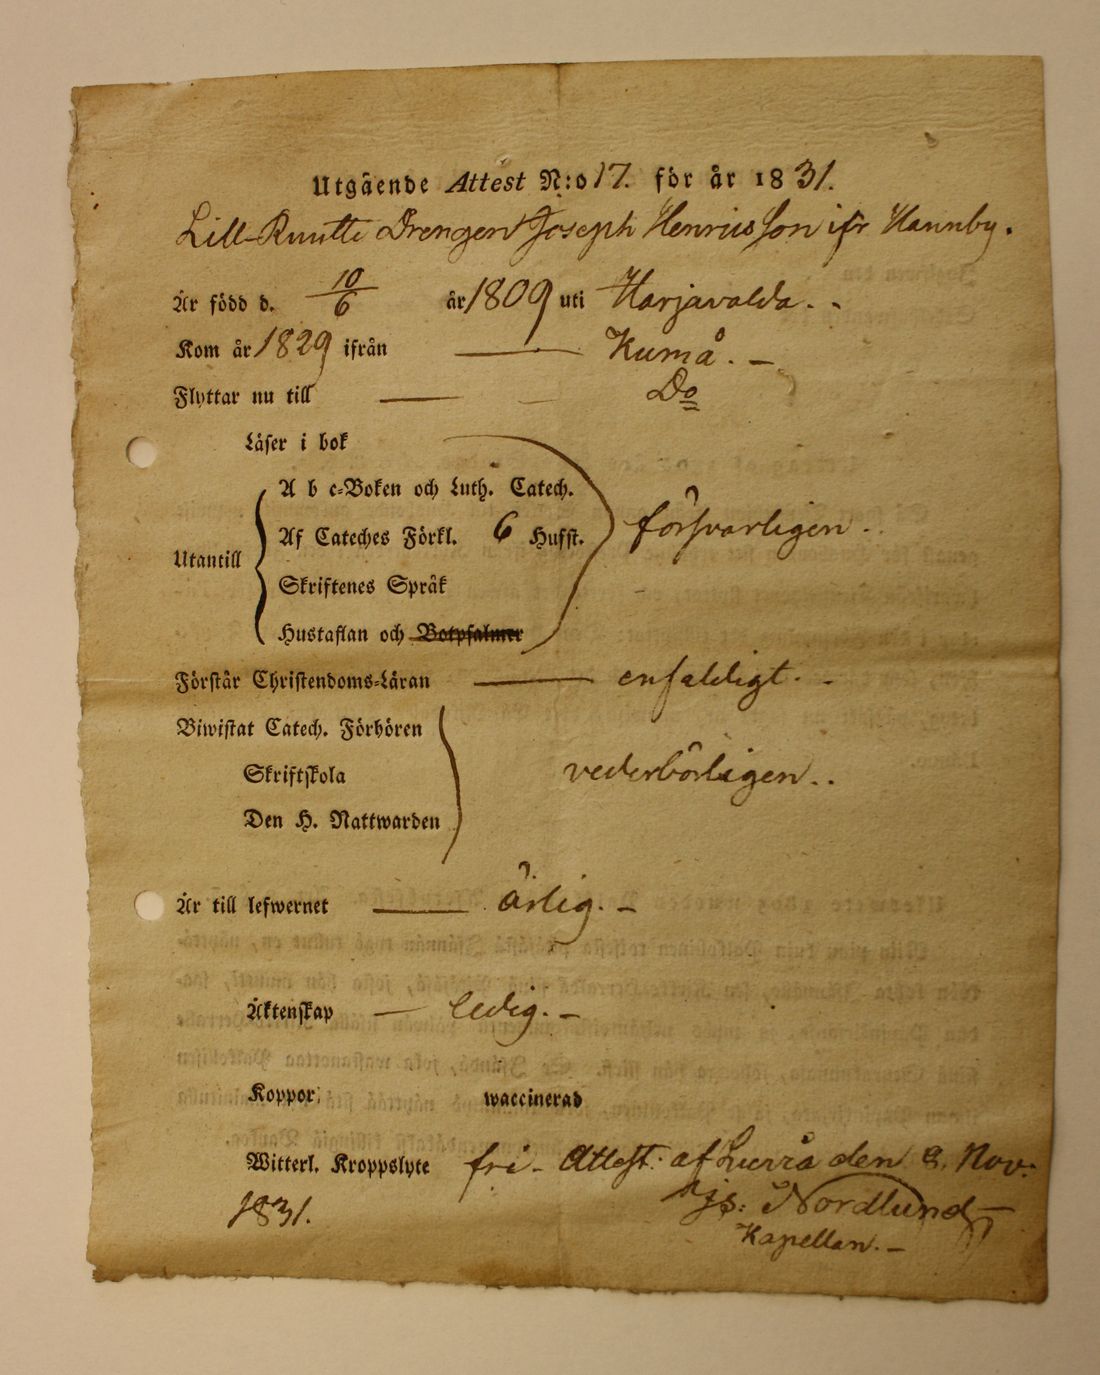 Utgående Attest N:o 17. för år 1831.
Lill-Ruutte Drengen Joseph Henriksson ifr Hannby.
Är född d. 10/6 år 1809 uti Harjavalda.
Kom år 1829 ifrån — Kumå. —
Flyttar nu till — Do
Läser i bok
A b c-Boken och Luth. Catech.
Af Cateches Förkl. 6 Hufst. försvarligen.
Utantill
Skriftenes Språk
Hustaflan och Botpsalmer
Förstår Christendoms-Läran — enfaldigt. -
Biwistat Catech. Förhören
Skriftskola vederbörligen..
Den H. Nattwarden
Är till lefwernet — ärlig. -
Äktenskap — ledig. -
Koppor waccinerad
Witterl. Kroppslyte fri. Attest: af den Nov:
1831. Nordlund
Kapellan. -